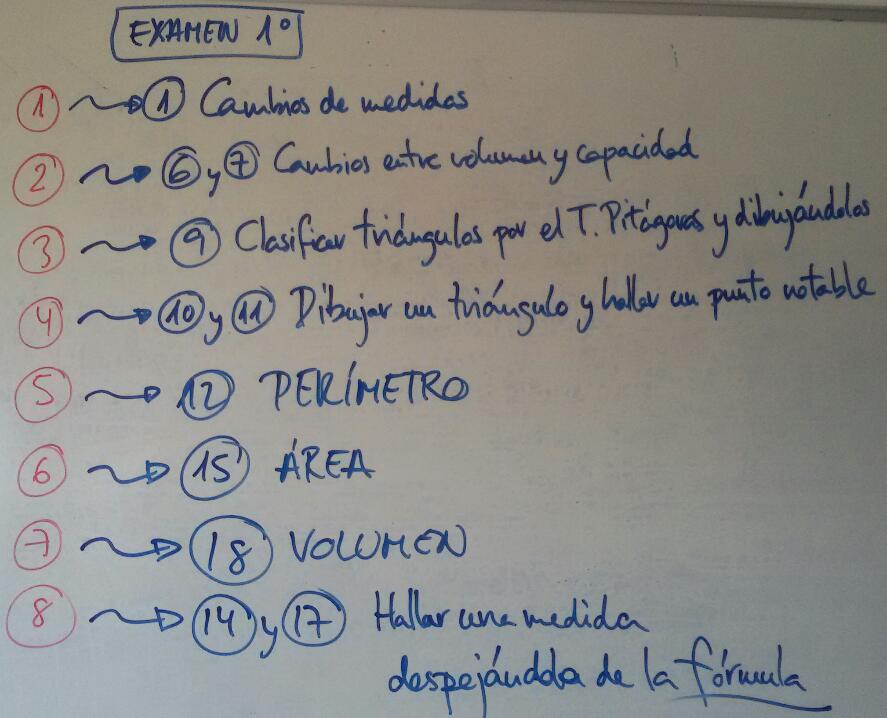 EXAMEN 1º
1 → 1 Cambios de medidas
2 → 6 y 7 Cambios entre volumen y capacidad
3 → 9 Clasificar triángulos por el T. Pitágoras y dibujándolos
4 → 10 y 11 Dibujar un triángulo y hallar un punto notable
5 → 12 PERÍMETRO
6 → 15 ÁREA
7 → 18 VOLUMEN
8 → 14 y 17 Hallar una medida
despejándola de la fórmula